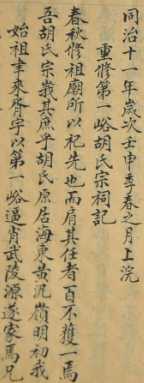 同治十一年歲次壬申季春之月上浣
重修第一峪胡氏宗祠記
春秋修祖廟所以祀先也而肩其任者百不獲一焉
吾胡氏宗裁其庶乎胡氏原居海東黃泥嶺明初我
始祖聿來齊字以第一峪逼肖武陵源遂家焉兄